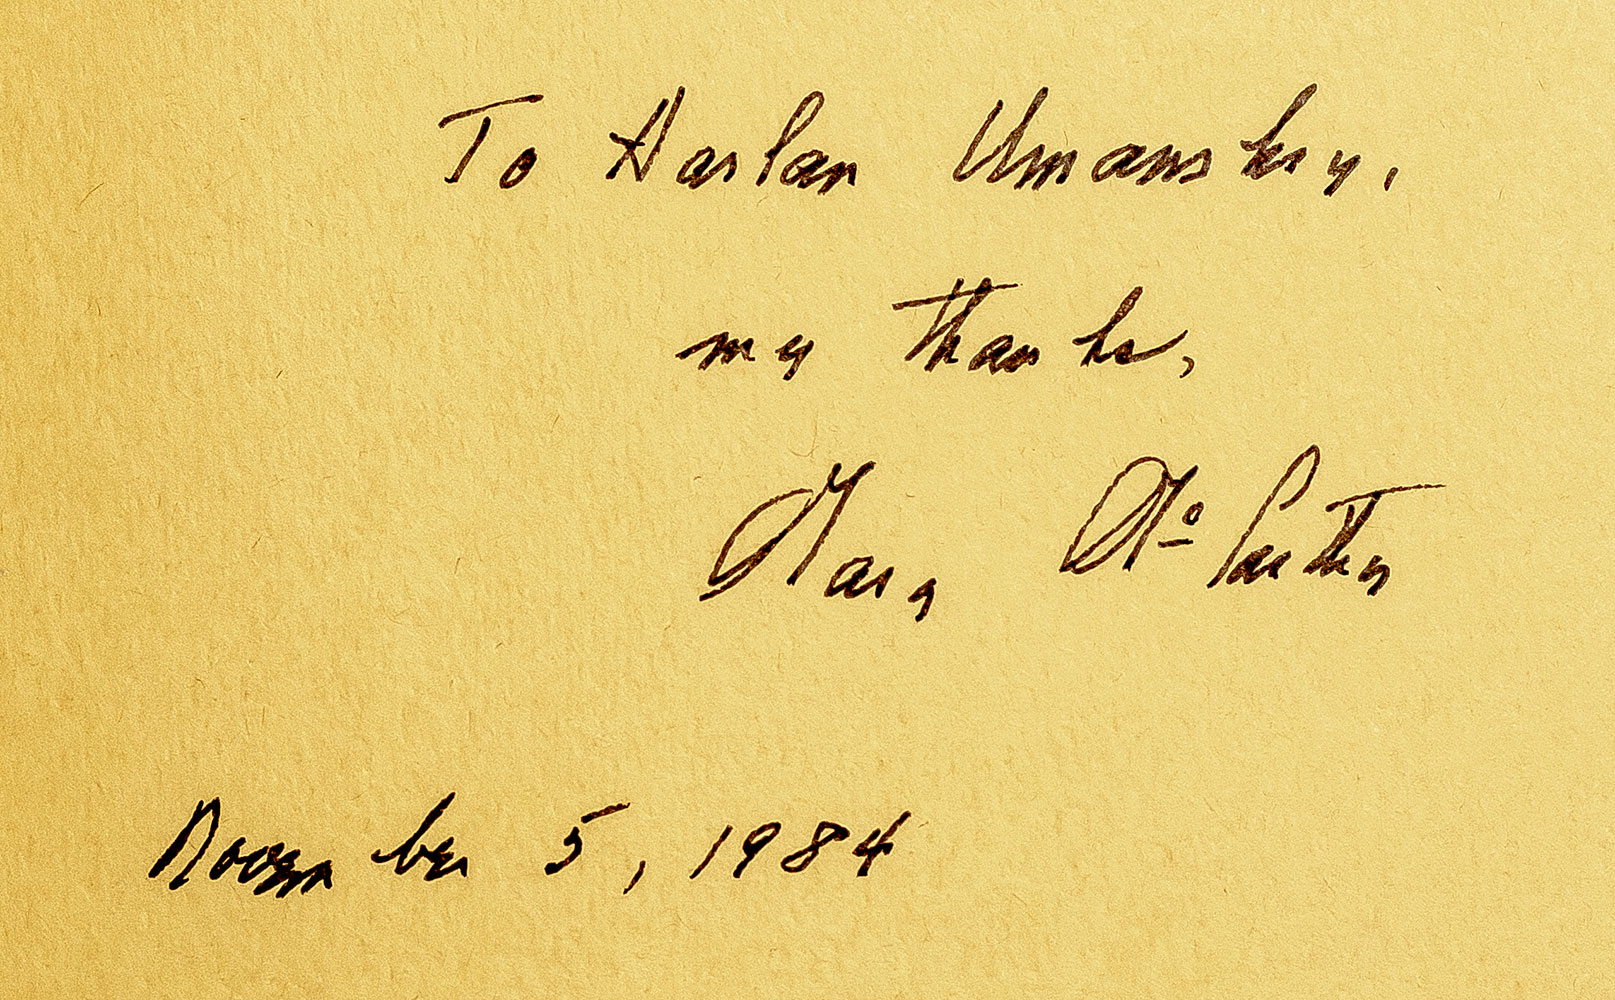 To Harlan Umansky,
my thanks,
Mary McCarthy
November 5, 1984